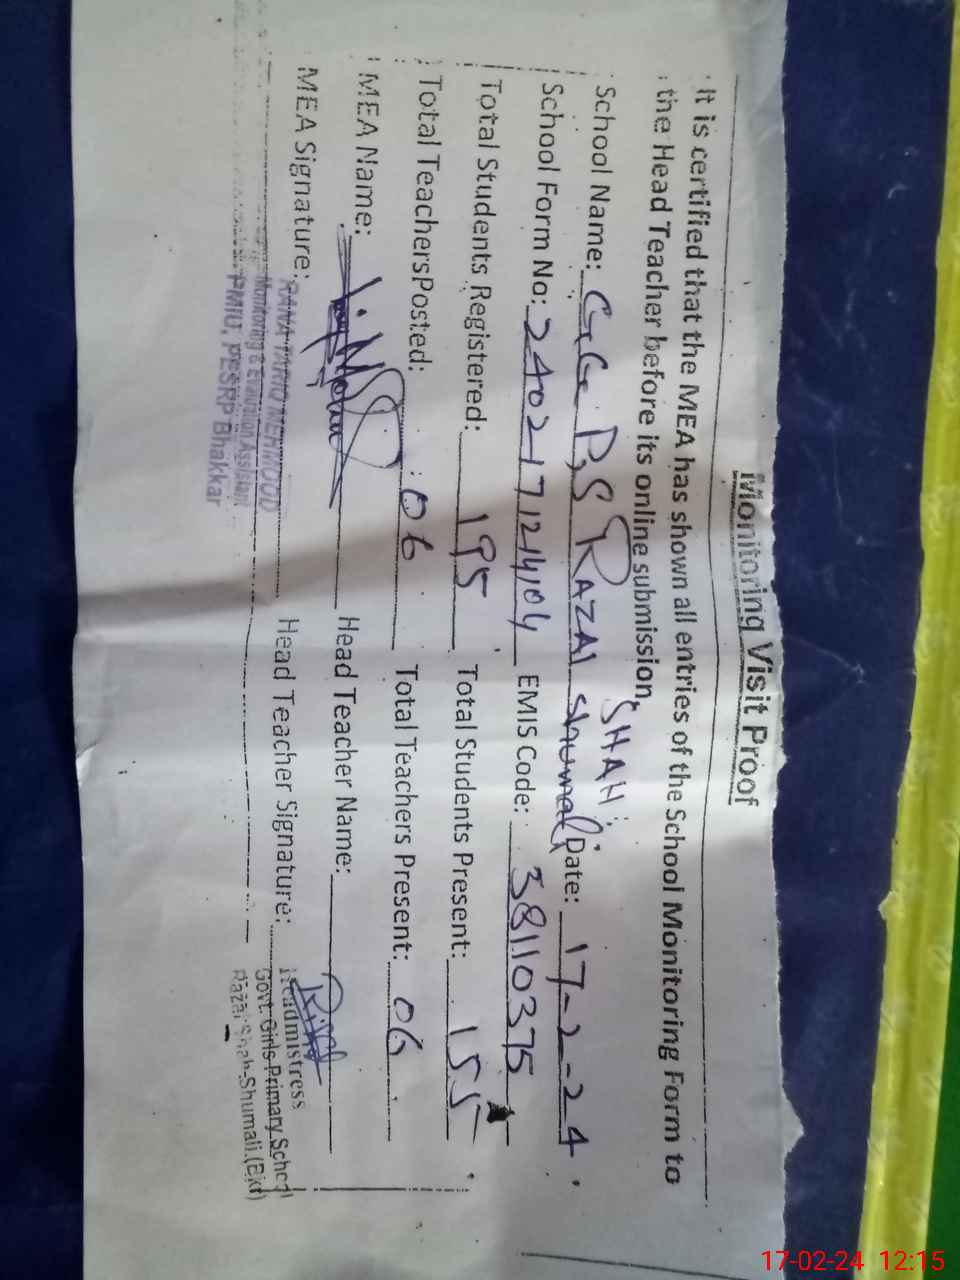 Monitoring Visit Proof
It is certified that the MEA has shown all entries of the School Monitoring Form to
the Head Teacher before its online submission,
SHAH
School Name: GGPS RAZAI Shumali Date: 17-2-24
School Form No: 2402171214104 EMIS Code: 38110375
Total Students Registered: 195 Total Students Present: 155
Total TeachersPosted: 06 Total Teachers Present: 06
MEA Name: Head Teacher Name:
MEA Signature: Head Teacher Signature:
RANA TARIQ MEHMOOD
Monitoring & Evaluation Assistant
PMIU, PESRP Bhakkar
Headmistress
Govt. Girls Primary School
Razai Shah Shumali (Bkr)
17-02-24 12:15